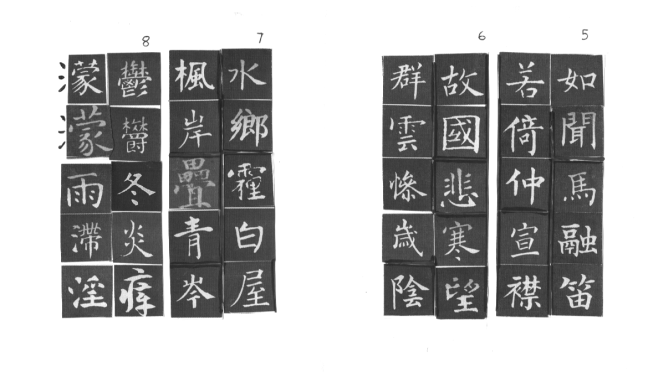 5
如聞馬融笛
若倚仲宣襟
6
故國悲寒望
群雲慘歲陰
7
水鄉霾白屋
楓岸疊青岑
8
鬱欝冬炎瘴
濛濛雨滯淫